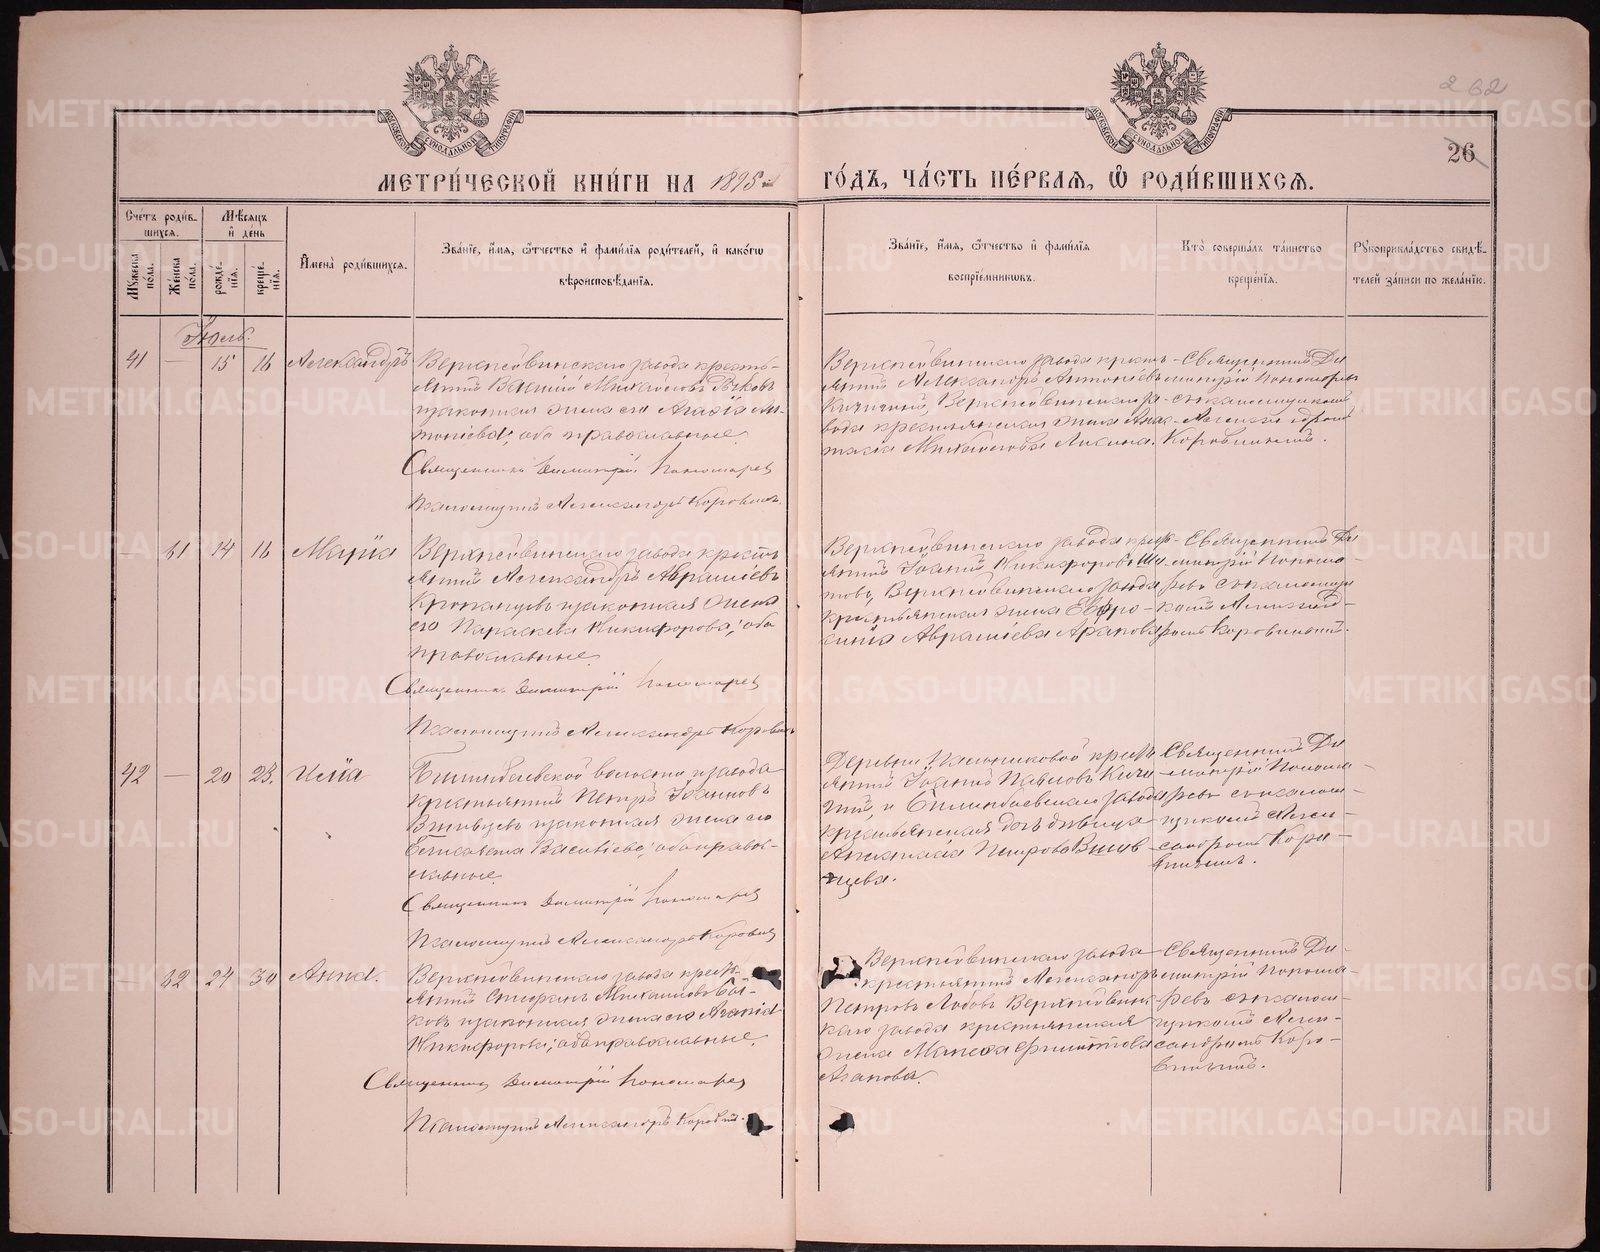 262
26
МОСКОВСКОЙ СѴНОДАЛЬНОЙ ТИПОГРАФІИ
МОСКОВСКОЙ СѴНОДАЛЬНОЙ ТИПОГРАФІИ
МЕТРИ́ЧЕСКОЙ КНИ́ГИ НА 1895 й ГО́ДЪ, ЧА́СТЬ ПЕ́РВАЯ, Ѡ РОДИ́ВШИХСЯ.
Сче́тъ роди́в-
шихся.
Мѣ́сяцъ
и де́нь
Му́жеска по́ла.
Же́нска по́ла.
рожде́-нїя.
креще́-нїя.
Имена̀ роди́вшихся.
Зва́нїе, и́мя, ѻ́тчество и фами́лїя роди́телей, и како́гѡ
вѣроисповѣ́данїя.
Зва́нїе, и́мя, ѻ́тчество и фами́лїя
воспрїе́мниковъ.
Кто̀ соверша́лъ та́инство
креще́нїя.
Рукоприкла́дство свидѣ́-
телей за́писи по жела́нїю.
Іюль.
41 — 15 16 Александръ
Верхнейвинскаго завода кресть-
янинъ Василій Михайловъ
и законная жена его Агафія Ан-
тоніева; оба православные.
Священникъ Димитрій Пономарев
Псаломщикъ Александръ Коровинъ.
Верхнейвинскаго завода кресть-
янинъ Александръ Антоніевъ
Кичигинъ, Верхнейвинскаго за-
вода крестьянская жена Ана-
Михайлова
Священникъ Ди-
митрій Пономарев
съ псаломщикомъ
Александромъ
Коровинымъ.
— 61 14 16 Марія
Верхнейвинскаго завода кресть-
янинъ Александръ Авраміевъ
и законная жена
его Параскева Никифорова; оба
православные.
Священникъ Димитрій Пономарев
Псаломщикъ Александръ Коровинъ
Верхнейвинскаго завода крест-
янинъ Іоаннъ Никифоровъ
Верхнейвинскаго завода
крестьянская жена Евфро-
синія Авраміева
Священникъ Ди-
митрій Понома-
ревъ съ псаломщи-
комъ Александ-
ромъ Коровинымъ.
42 — 20 28. Илія
Билимбаевской волости и завода
крестьянинъ Петръ Іоанновъ
и законная жена его
Елисавета Васильева; оба правос-
лавные.
Священникъ Димитрій Пономарев
Псаломщикъ Александръ Коровин
Деревни крестъ-
янинъ Іоаннъ Павловъ Кичи-
гинъ, и Билимбаевскаго завода
крестьянская дочь девица
Анастасія Петрова
Священникъ Ди-
митрій Понома-
ревъ съ псалом-
щикомъ Алек-
сандромъ Коро-
винымъ.
— 62 24 30 Анна.
Верхнейвинскаго завода крест-
янинъ Стефанъ Михаиловъ
и законная жена его
Никифорова; оба православные.
Священникъ Димитрій Пономарев
Псаломщикъ Александръ Коровин.
Верхнейвинскаго завода
крестьянинъ Александръ
Петровъ Лобовъ Верхнейвинс-
каго завода крестьянская
жена
Агапова.
Священникъ Ди-
митрій Понома-
ревъ съ псалом-
щикомъ Алек-
сандромъ Коро-
винымъ.